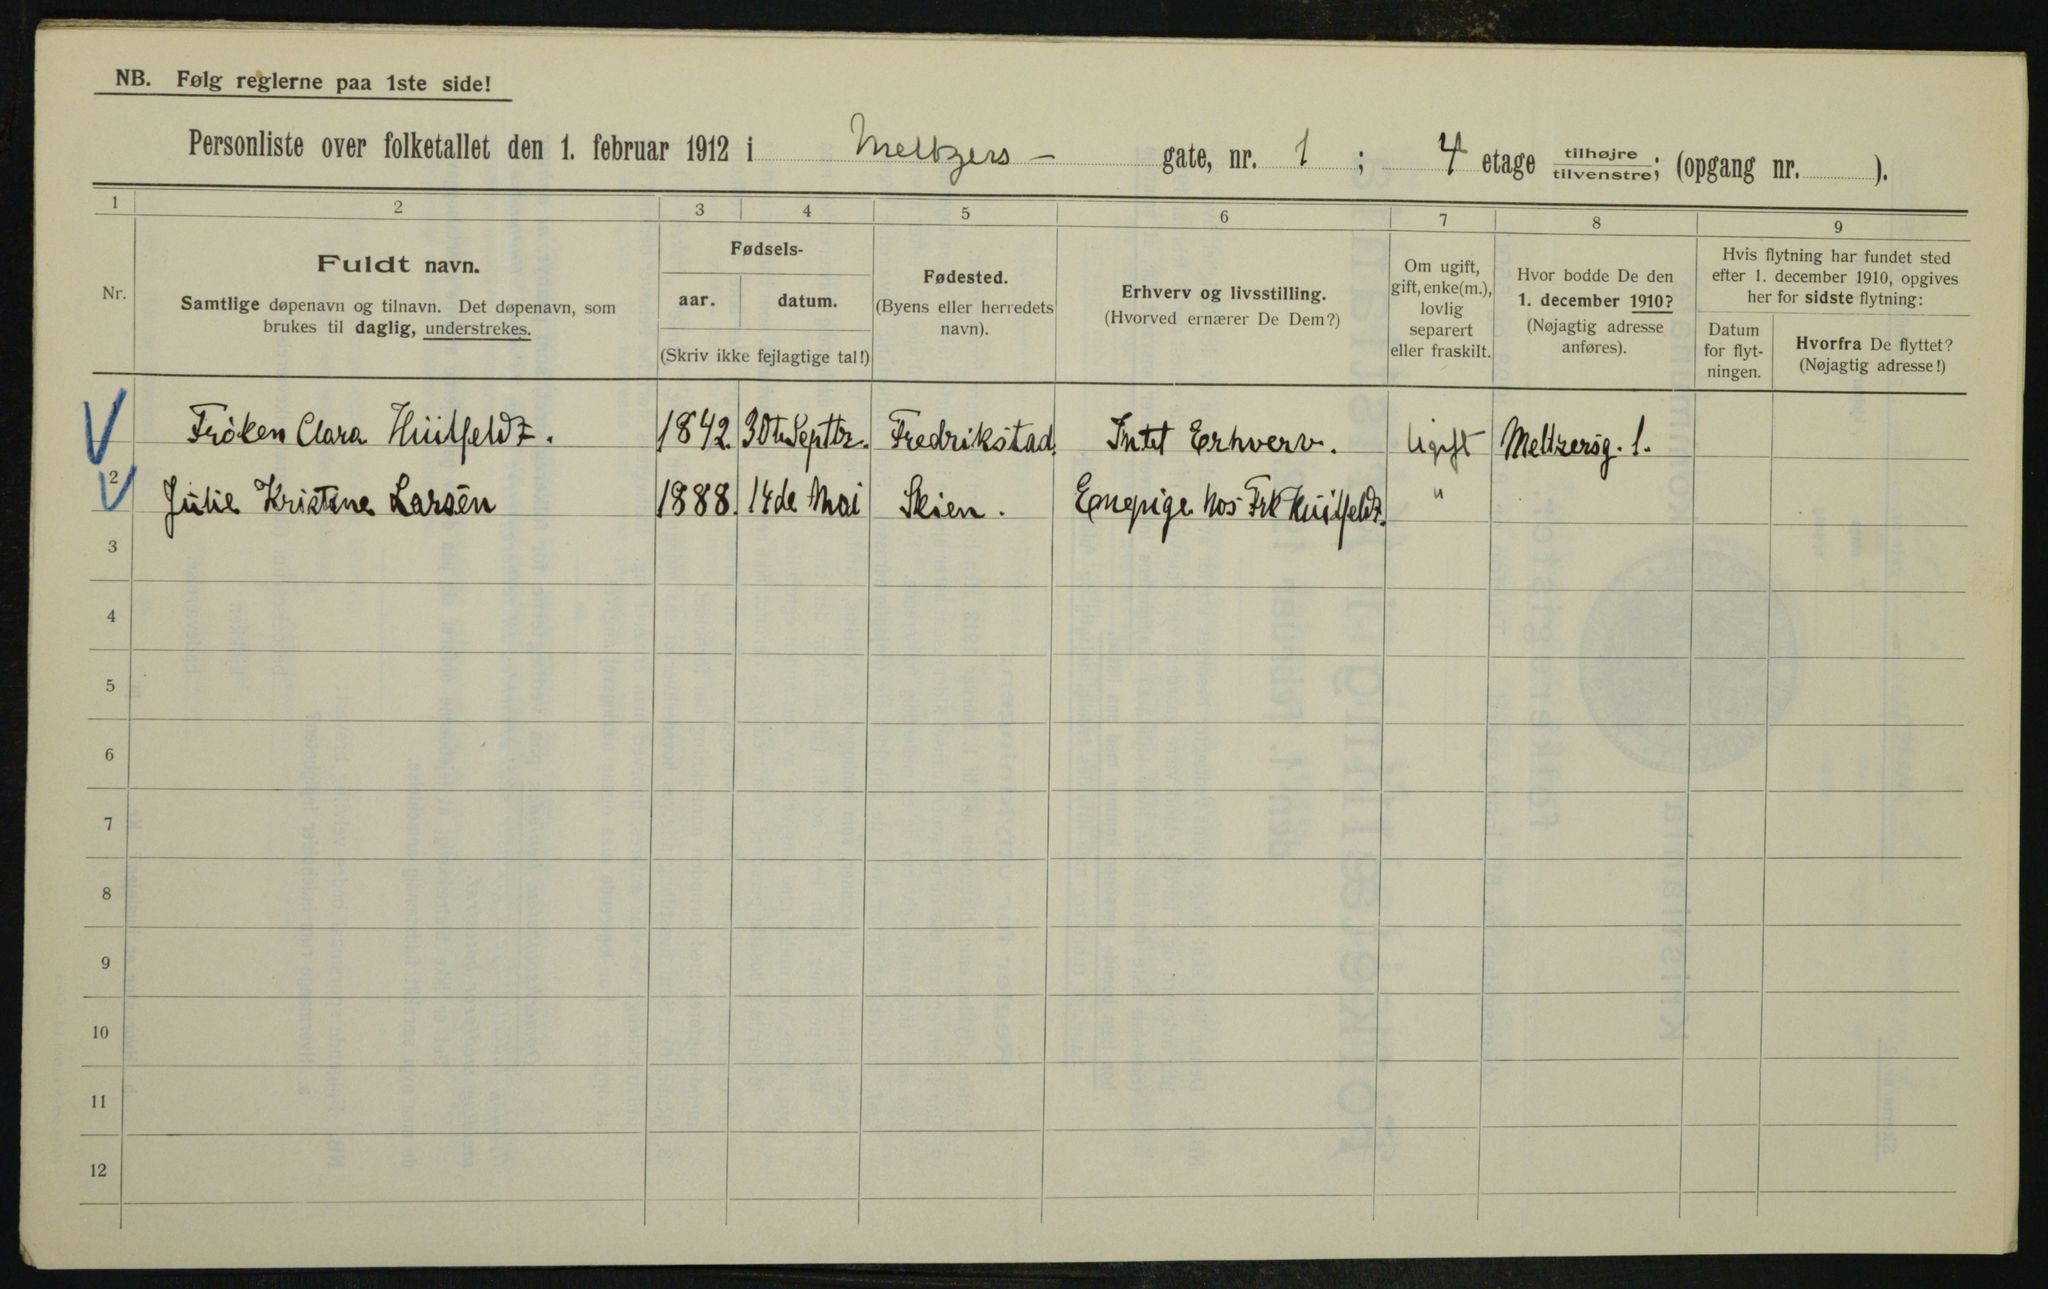 NB. Følg reglerne paa 1ste side!
Personliste over folketallet den 1. februar 1912 i Meltzers- gate, nr. 1 ; 4 etage tilhøjre tilvenstre; (opgang nr. ).
1 2 3 4 5 6 7 8 9
Nr.
Fuldt navn.
Samtlige døpenavn og tilnavn. Det døpenavn, som
brukes til daglig, understrekes.
Fødsels-
aar. datum.
(Skriv ikke fejlagtige tal!)
Fødested.
(Byens eller herredets
navn).
Erhverv og livsstilling.
(Hvorved ernærer De Dem?)
Om ugift,
gift, enke(m.),
lovlig
separert
eller fraskilt.
Hvor bodde De den
1. december 1910?
(Nøjagtig adresse
anføres).
Hvis flytning har fundet sted
efter 1. december 1910, opgives
her for sidste flytning:
Datum
for flyt-
ningen.
Hvorfra De flyttet?
(Nøjagtig adresse!)
Frøken Clara Hüitfeldt. 1842. 30te Septbr. Fredrikstad. Intet Erhverv. Ugift Meltzersg. 1.
2 Julie Kristine Larsen 1888. 14de Mai Skien. Enepige hos Frk Hüitfeldt. "
3
4
5
6
7
8
9
10
11
12